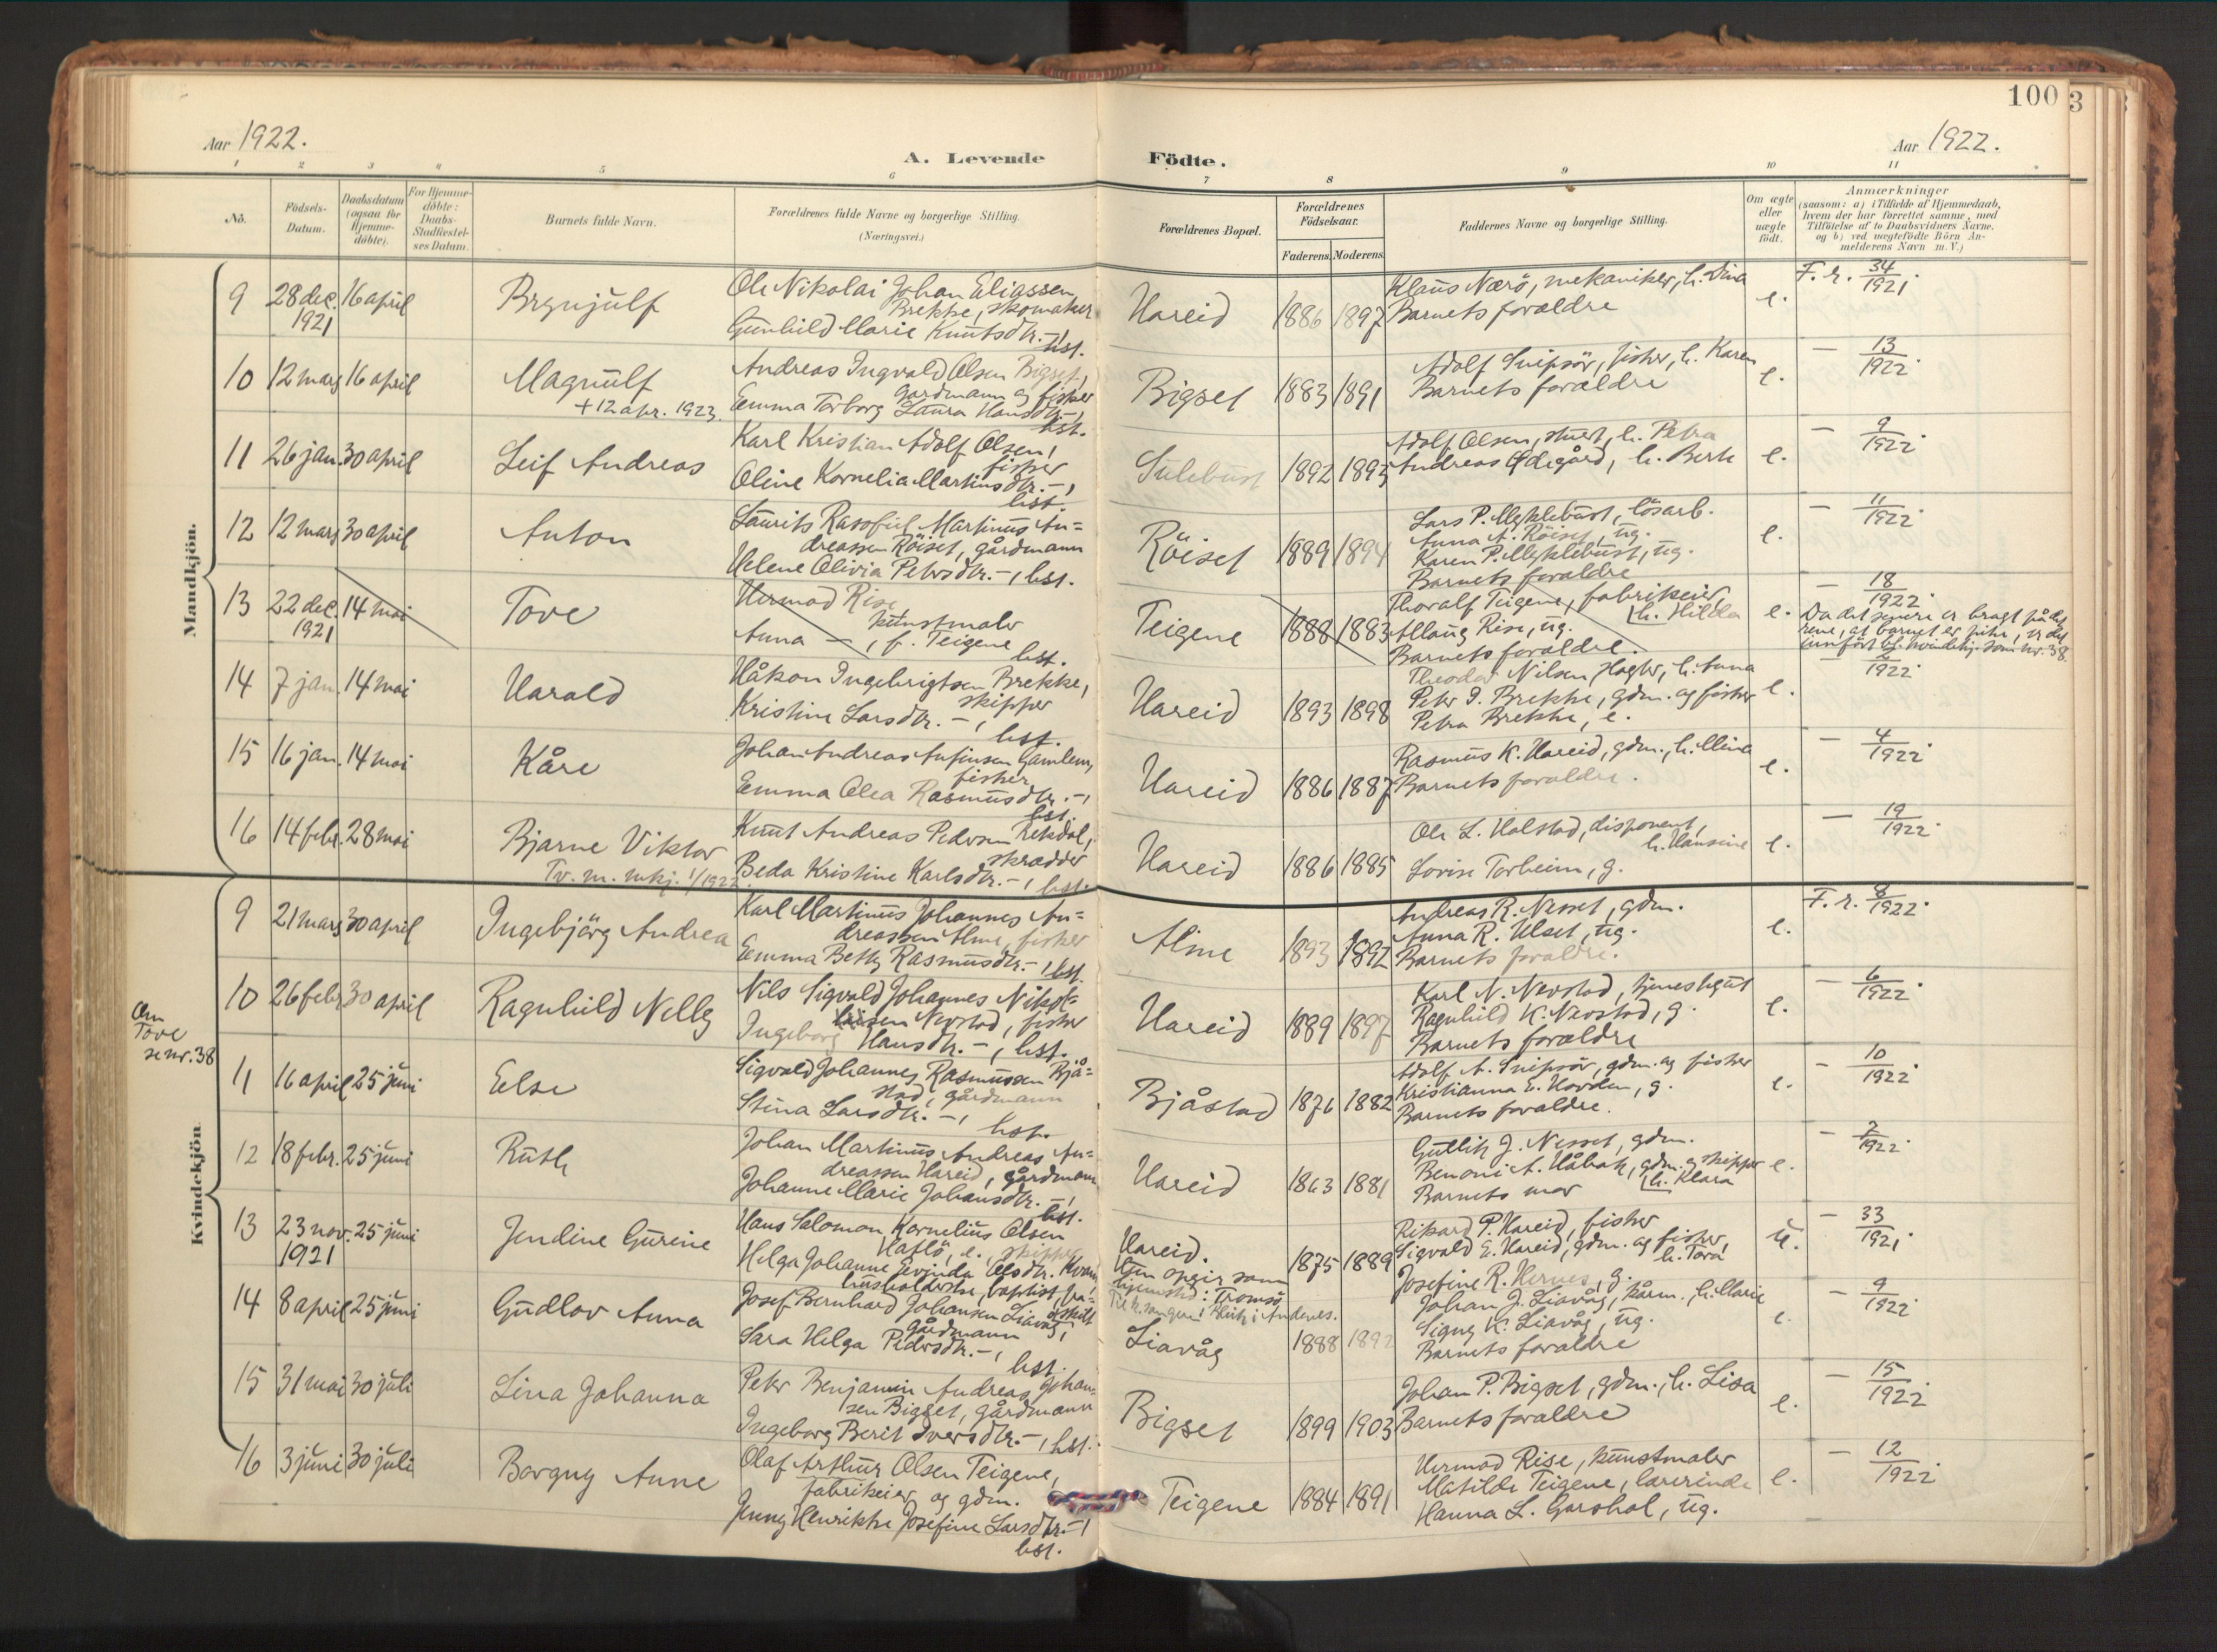 100 3
Aar 1922.
A. Levende
Födte.
Aar 1922.
1 2 3 4 5 6 7 8 9 10 11
Nô.
Födsels-
Datum.
Daabsdatum
(ogsaa for
Hjemme-
döbte).
For Hjemme-
döbte:
Daabs-
Stadfæstel-
ses Datum.
Barnets fulde Navn.
Forældrenes fulde Navne og borgerlige Stilling.
(Næringsvei.)
Forældrenes Bopæl.
Forældrenes
Födselsaar.
Faderens. Moderens.
Faddernes Navne og borgerlige Stilling.
Om ægte
eller
uægte
født.
Anmærkninger
(saasom: a) i Tilfælde af Hjemmedaab,
hvem der har forrettet samme, med
Tilföielse af to Daabsvidners Navne.
og b) ved uægtefödte Börn An-
melderens Navn m.V.)
Mandkjön.
9 28 dec. 1921 16 april Brynjulf
Ole Nikolai Johan Eliassen
Brekke, skomaker
Gunhild Marie Knutsdtr. -, hst.
Hareid 1886 1897
Klaus Nærö, mekaniker, h. Dina
Barnets forældre
e. F. r. 34/1921.
10 12 mars 16 april Magnulf
+ 12 apr. 1923.
Andreas Ingvald Olsen Bigset,
gardmann og fisker
Emma Torborg Laura Hansdtr. -, hst.
Bigset 1883 1891
Adolf Snipsör, fisker, h. Karen
Barnets forældre
e. - 13/1922.
11 26 jan. 30 april Leif Andreas
Karl Kristian Adolf Olsen,
fisker
Oline Kornelia Martinsdtr. -, hst.
Sulebust 1892 1895
Adolf Olsen, stuert, h. Petra
Andreas Ödegård, h. Berte
e. - 9/1922.
12 12 mars 30 april Anton
Laurits Rasofiel Martinus An=
dreassen Röiset, gårdmann
Helene Olivia Petersdtr. -, hst.
Röiset 1889 1894
Lars P. Myklebust, lösarb.
Anna A. Röiset, ug.
Karen P. Myklebust, ug.
Barnets forældre
e. - 11/1922.
13 22 dec. 1921 14 mai Tove
Hermod Rise
kunstmaler
Anna -, f. Teigene hst.
Teigene 1888 1883
Thoralf Teigene, fabrikeier,
h. Hilda
Allaug Rise, ug.
Barnets forældre.
e. - 18/1922.
Da det senere er bragt på det
rene, at barnet er pike, er det
innfört bl. kvindekj. som nr. 38.
14 7 jan. 14 mai Harald
Håkon Ingebrigtsen Brekke,
skipper
Kristine Larsdtr. -, hst.
Hareid 1893 1898
Theodor Nilsen Hagter, h. Anna
Peter I. Brekke, gdm. og fisker
Petra Brekke, e.
e. - 2/1922
15 16 jan. 14 mai Kåre
Johan Andreas Anfinsen Gamlem,
fisker
Emma Olea Rasmusdtr. -, hst.
Hareid 1886 1887
Rasmus K. Hareid, gdm., h. Elina
Barnets forældre.
e. - 4/1922.
16 14 febr. 28 mai Bjarne Viktor
Tv. m. mkj. 1/1922.
Knut Andreas Pedersen Rekdal,
skrædder
Beda Kristine Karlsdtr. -, hst.
Hareid 1886 1885
Ole L. Holstad, disponent,
h. Hansine
Lovise Torheim, g.
e. - 19/1922.
Kvindekjön
9 21 mars 30 april Ingebjörg Andrea
Karl Martinus Johannes An=
dreassen Alme, fisker
Emma Betty Rasmusdtr. -, hst.
Alme 1893 1892
Andreas R. Nesset, gdm.
Anna R. Ulset, ug.
Barnets forældre.
e. F. r. 8/1922.
10 26 febr. 30 april Ragnhild Nelly
Nils Sigvald Johannes Nikol=
aisen Nevstad, fisker
Ingeborg Hansdtr. -, hst.
Hareid 1889 1897
Karl N. Nevstad, tjenestegut
Ragnhild K. Nevstad, g.
Barnets forældre
e. - 6/1922.
Om
Tove
se nr. 38
11 16 april 25 juni Else
Sigvald Johannes Rasmussen Bjå=
stad, gårdmann
Stina Larsdtr. -, hst.
Bjåstad 1876 1882
Adolf A. Snipsör, gdm. og fisker
Kristianna E. Hovden, g.
Barnets forældre.
e. - 10/1922.
12 18 febr. 25 juni Ruth
Johan Martinus Andreas An=
dreassen Hareid, gårdmann
Johanne Marie Johansdtr. -, hst.
Hareid 1863 1881
Gutlik J. Nesset, gdm.
Benoni A. Håbak, gdm. og skipper
h. Klara
Barnets mor
e. - 2/1922.
13 23 nov. 1921 25 juni Jendine Gurine
Hans Salomon Kornelius Olsen
Haflö, e., skipper
Helga Johanne Jevinda Olsdtr. Kvam,
husholderske, baptist, fraskilt
Hareid.
Hun opgir som
hjemsted: Tromsö.
1875 1889
Rikard P. Hareid, fisker
Sigvald E. Hareid, gdm. og fisker,
h. Tora
Josefine R. Hernes, g.
u. - 33/1921.
14 8 april 25 juni Gudlov Anna
Josef Bernhard Johansen Liavåg,
gårdmann
Sara Helga Pedersdtr. -, hst.
Liavåg 1888 1892
Johan J. Liavåg, kårm., h. Marie
Signy K. Liavåg, ug.
Barnets forældre
e. - 9/1922.
15 31 mai 30 juli Lina Johanna
Peter Benjamin Andreas Johan=
sen Bigset, gårdmann
Ingeborg Berit Iversdtr. -, hst.
Bigset 1899 1903
Johan P. Bigset, gdm., h. Lisa
Barnets forældre
e. - 15/1922.
16 3 juni 30 juli Borgny Anne
Olaf Arthur Olsen Teigene,
fabrikeier og gdm.
Jenny Henrikke Josefine Larsdtr. -,
hst.
Teigene 1884 1891
Hermod Rise, kunstmaler
Matilde Teigene, lærerinde
Hanna L. Garshol, ug.
e. - 12/1922.